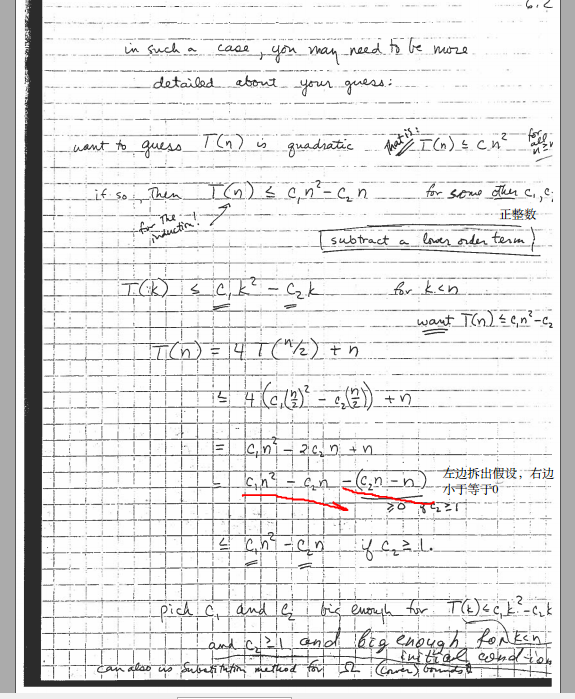 6.2
in such a case, you may need to be more
detailed about your guess:
want to guess T(n) is quadratic that is: T(n) ≤ c n² for all n ≥ n
if so, Then T(n) ≤ c₁n² - c₂ n for some other c₁, c
for The induction!
正整数
subtract a lower order term
T(k) ≤ c₁k² - c₂k for k<n
want T(n) ≤ c₁n² - c₂
T(n) = 4 T(n/2) + n
≤ 4 (c₁(n/2)² - c₂(n/2)) + n
= c₁n² - 2c₂n + n
= c₁n² - c₂n - (c₂n - n) 左边拆出假设，右边
小于等于0
≥0 if c₂≥1
≤ c₁n² - c₂n if c₂ ≥ 1.
pick c₁ and c₂ big enough for T(k) ≤ c₁k² - c₂k
and c₂ ≥ 1 and big enough for k<n
initial condition
can also us Substitution method for Ω (lower) bounds